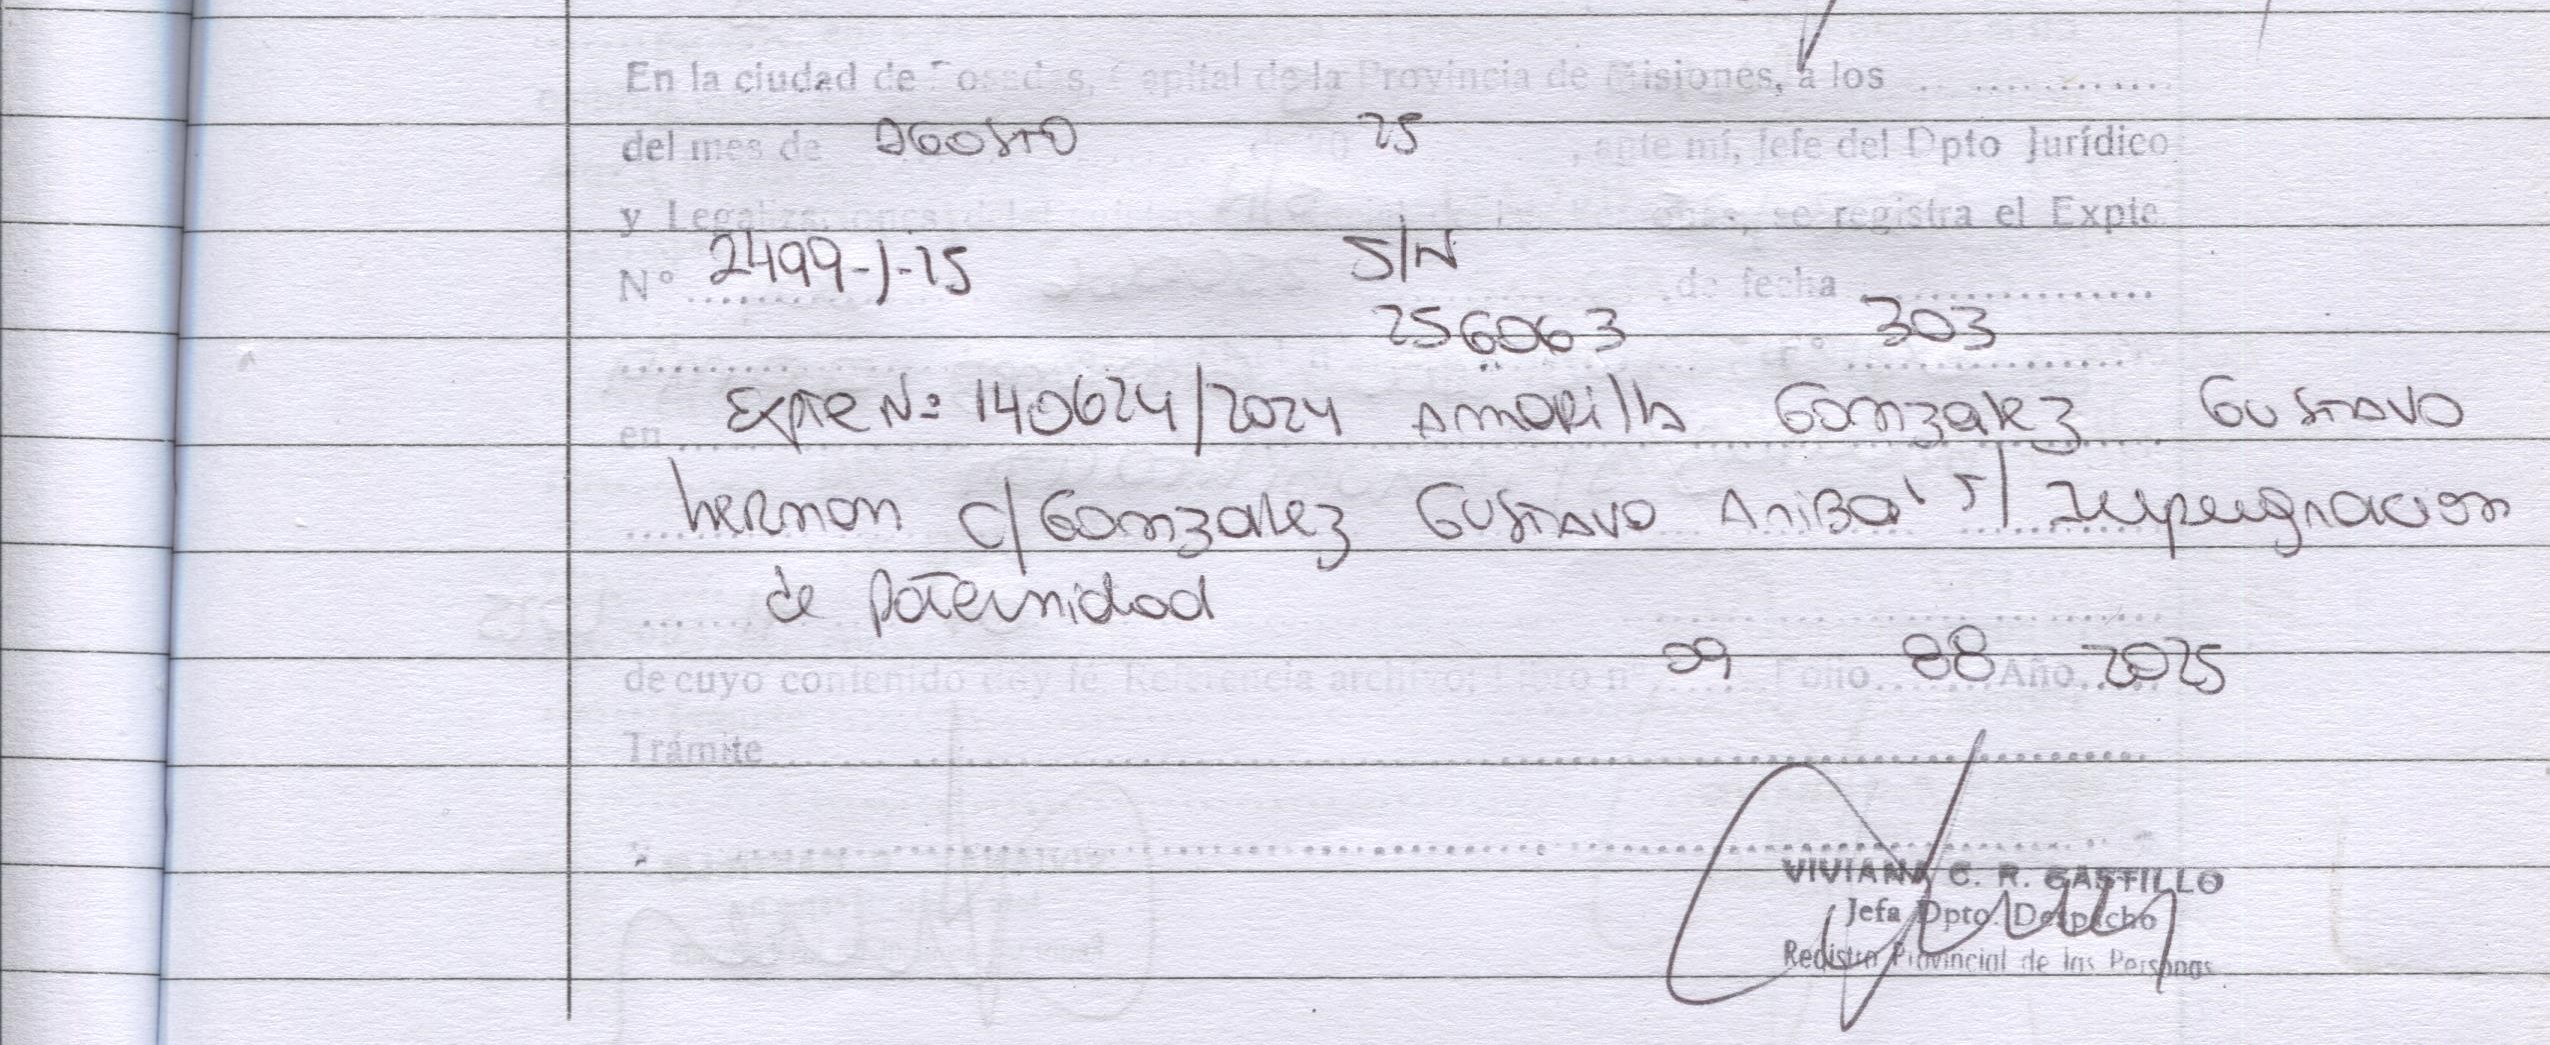 En la ciudad de Posadas, Capital de la Provincia de Misiones, a los .............
del mes de AGOSTO 25, ante mí, Jefe del Dpto Jurídico
y Legalizaciones se registra el Expte
Nº 2499-J-25 S/N de fecha ................
256063 Fº 303
en Expte Nº 140624/2024 Amarilla Gonzalez Gustavo
hernan c/ Gonzalez Gustavo Anibal s/ Impugnacion
de paternidad
de cuyo contenido doy fe. Referencia archivo: Libro nº 09 Folio 88 Año 2025
Trámite
VIVIANA C. R. CASTILLO
Jefa Dpto. Despacho
Registro Provincial de las Personas